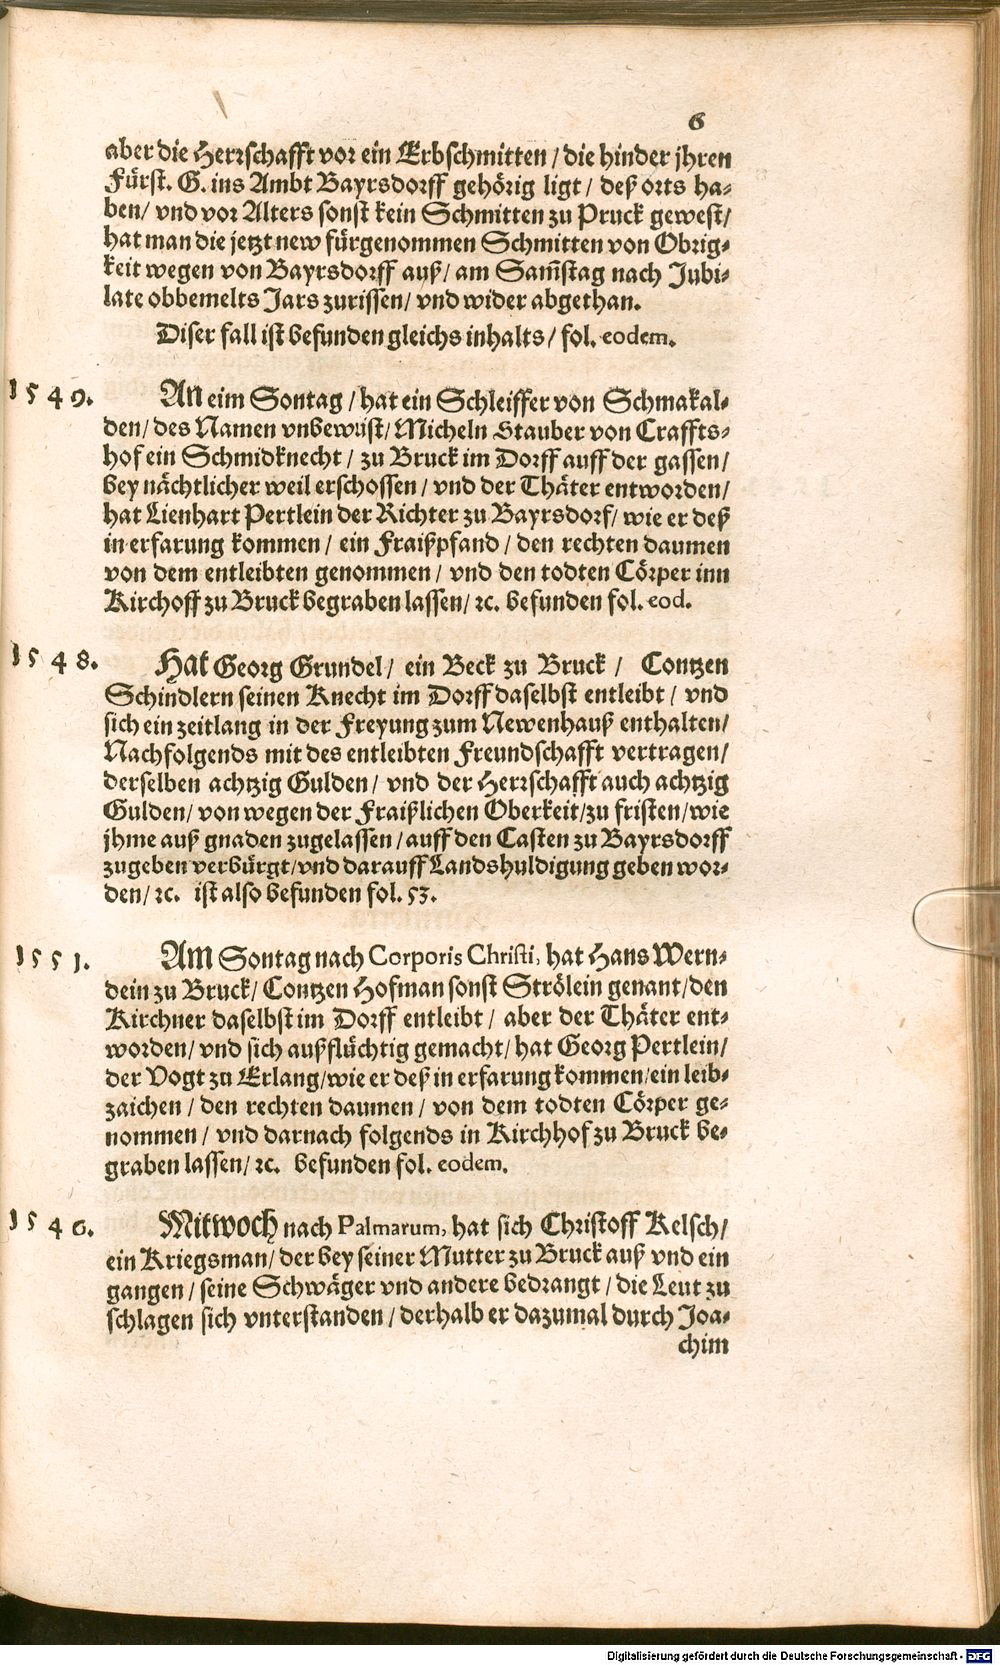 6
aber die Herrschafft vor ein Erbschmitten / die hinder jhren
Fürst. G. ins Ambt Bayrsdorff gehörig ligt / deß orts ha-
ben / vnd vor Alters sonst kein Schmitten zu Pruck gewest /
hat man die jetzt new fürgenommen Schmitten von Obrig-
keit wegen von Bayrsdorff auß / am Sam̄stag nach Jubi-
late obbemelts Jars zurissen / vnd wider abgethan.
Diser fall ist befunden gleichs inhalts / fol. eodem.
1549. An eim Sontag / hat ein Schleiffer von Schmakal-
den / des Namen vnbewust / Micheln Stauber von Craffts-
hof ein Schmidknecht / zu Bruck im Dorff auff der gassen /
bey nächtlicher weil erschossen / vnd der Thäter entworden /
hat Lienhart Pertlein der Richter zu Bayrsdorf / wie er deß
in erfarung kommen / ein Fraißpfand / den rechten daumen
von dem entleibten genommen / vnd den todten Cörper inn
Kirchoff zu Bruck begraben lassen / ꝛc. befunden fol. eod.
1548. Hat Georg Grundel / ein Beck zu Bruck / Contzen
Schindlern seinen Knecht im Dorff daselbst entleibt / vnd
sich ein zeitlang in der Freyung zum Newenhauß enthalten /
Nachfolgends mit des entleibten Freundschafft vertragen /
derselben achtzig Gulden / vnd der Herrschafft auch achtzig
Gulden / von wegen der Fraißlichen Oberkeit / zu fristen / wie
jhme auß gnaden zugelassen / auff den Casten zu Bayrsdorff
zugeben verbürgt / vnd darauff Landshuldigung geben wor-
den / ꝛc. ist also befunden fol. 53.
1551. Am Sontag nach Corporis Christi, hat Hans Wern-
dein zu Bruck / Contzen Hofman sonst Strölein genant / den
Kirchner daselbst im Dorff entleibt / aber der Thäter ent-
worden / vnd sich außflüchtig gemacht / hat Georg Pertlein /
der Vogt zu Erlang / wie er deß in erfarung kommen / ein leib-
zaichen / den rechten daumen / von dem todten Cörper ge-
nommen / vnd darnach folgends in Kirchhof zu Bruck be-
graben lassen / ꝛc. befunden fol. eodem.
1546. Mitwoch nach Palmarum, hat sich Christoff Kelsch /
ein Kriegsman / der bey seiner Mutter zu Bruck auß vnd ein
gangen / seine Schwäger vnd andere bedrangt / die Leut zu
schlagen sich vnterstanden / derhalb er dazumal durch Joa-
chim
Digitalisierung gefördert durch die Deutsche Forschungsgemeinschaft - DFG